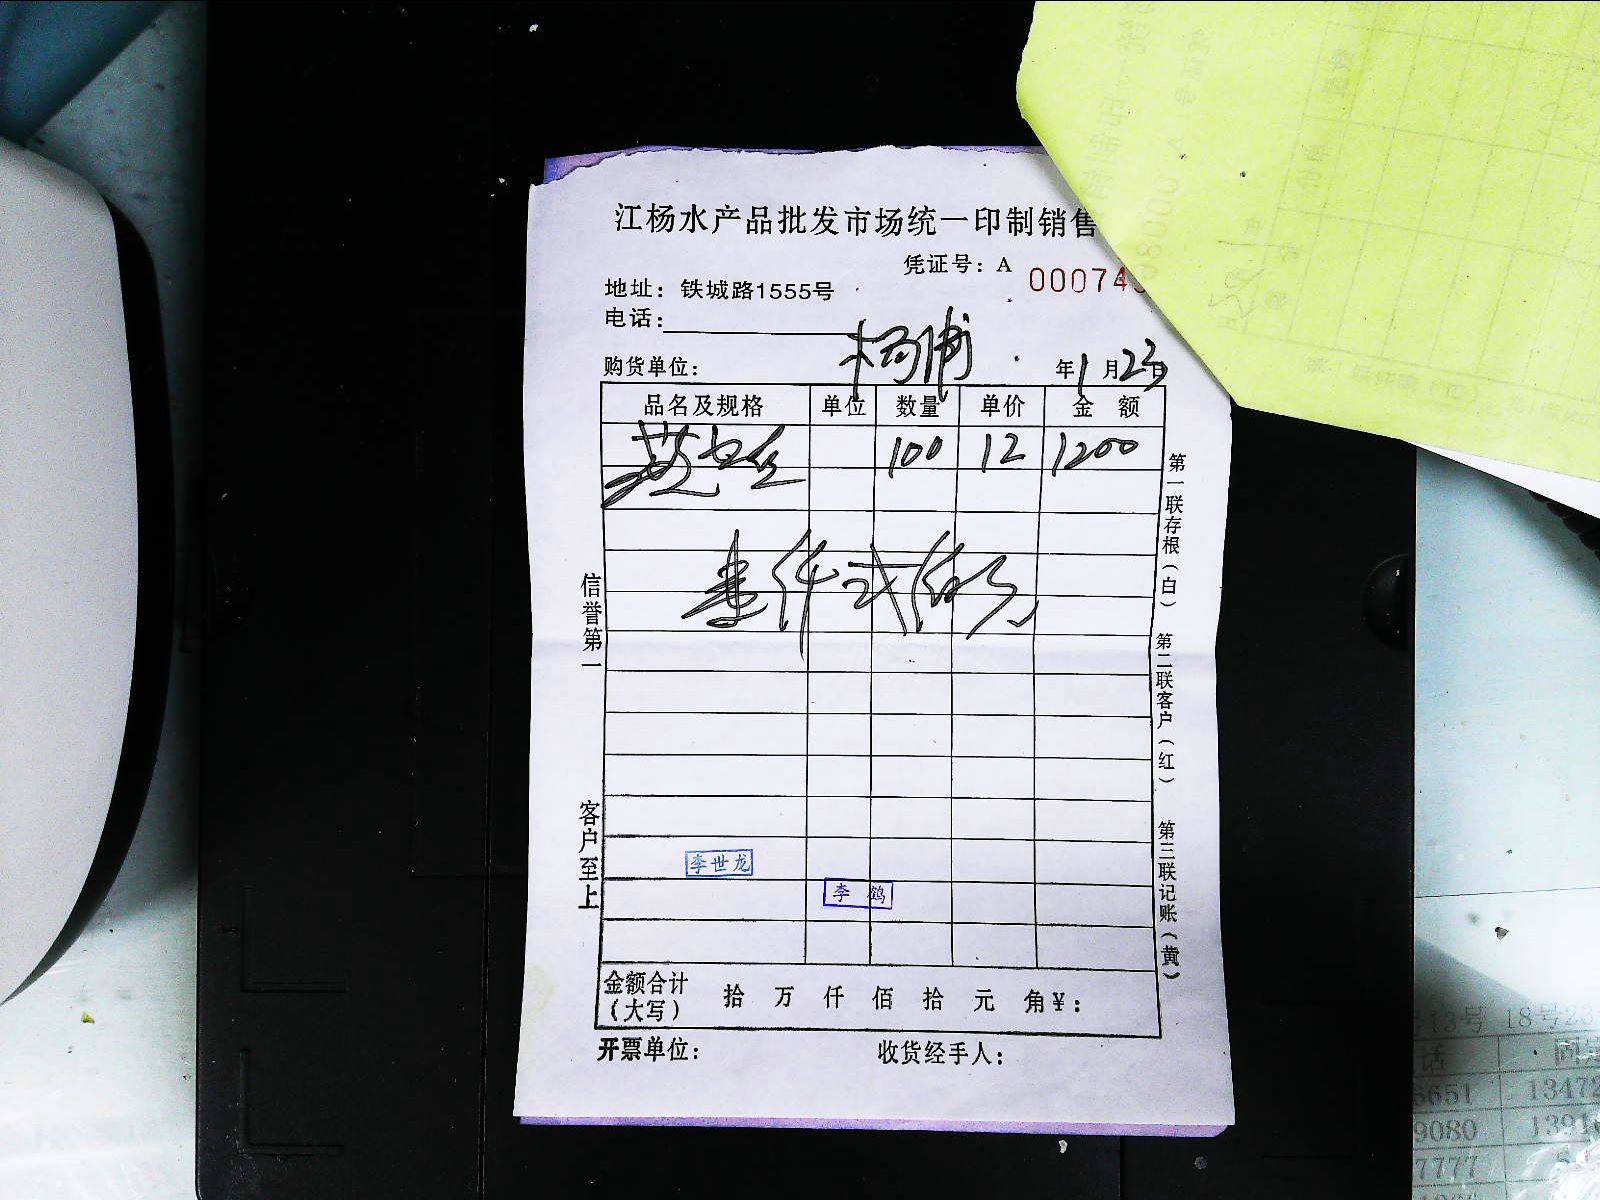 江杨水产品批发市场统一印制销售
凭证号：A 00074
地址：铁城路1555号
电话：
购货单位： 杨浦 年1月23日
品名及规格 单位 数量 单价 金额
100 12 1200
壹仟弍佰元
信誉第一
客户至上
第一联存根（白）
第二联客户（红）
第三联记账（黄）
李世龙
李鸽
金额合计（大写） 拾 万 仟 佰 拾 元 角￥：
开票单位： 收货经手人：
13号 18号23
话
6651 13472
9080 1391
7777